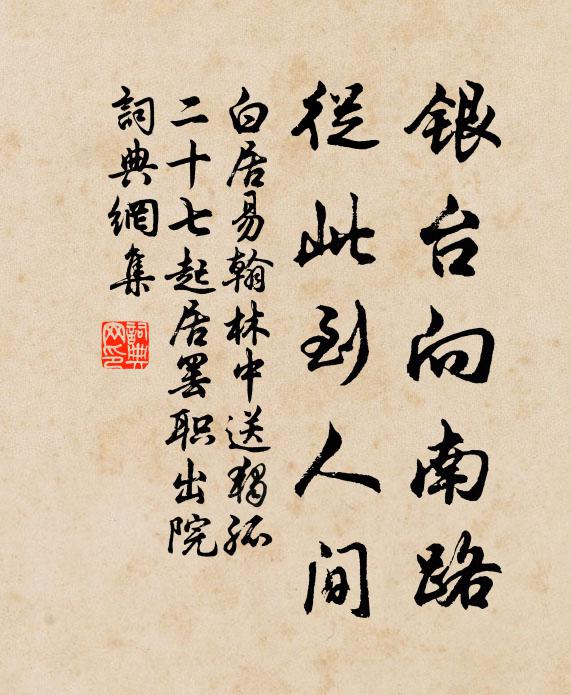 銀台向南路
從此到人间
白居易翰林中送獨孤
二十七起居罢职出院
詞典網集
詞典网印